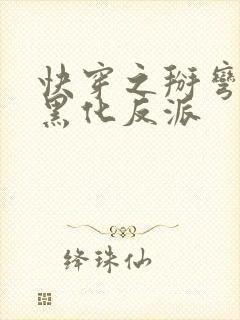 快穿之掰弯
黑化反派
绛珠仙